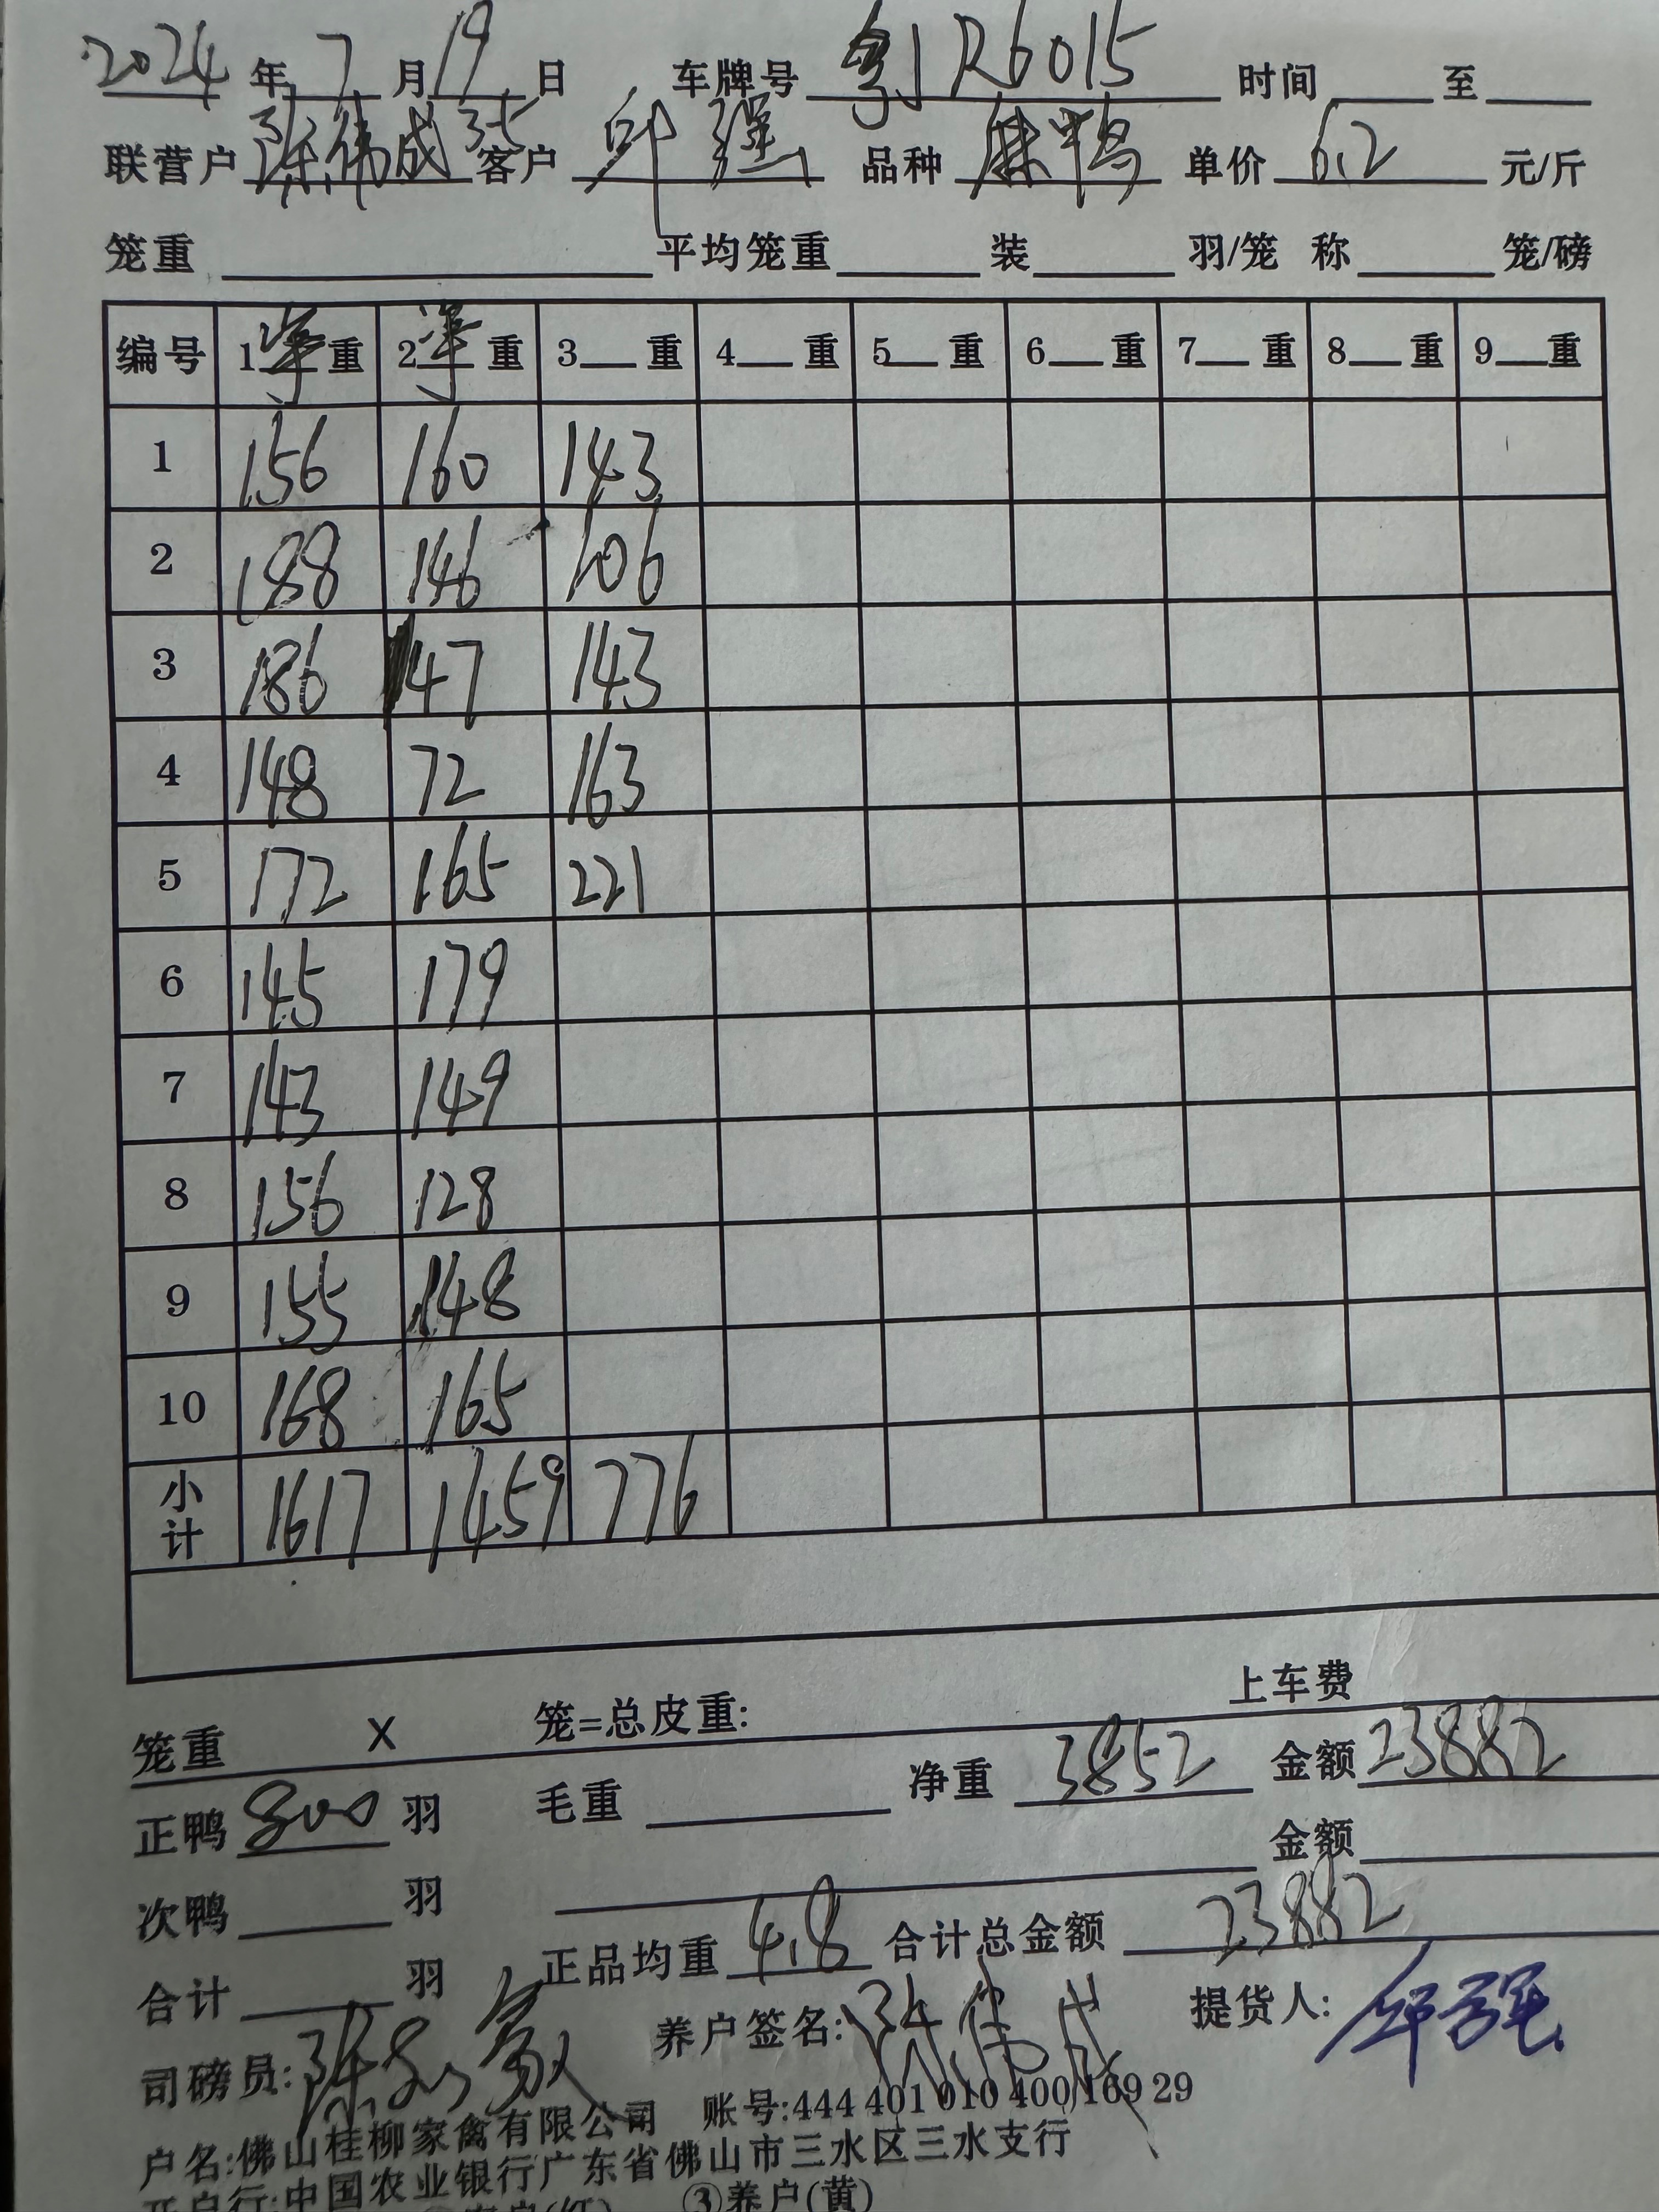 2024年7月19日 车牌号 粤JR6015 时间 至
联营户 陈伟成35 客户 邱强 品种 麻鸭 单价 6.2 元/斤
笼重 平均笼重 装 羽/笼 称 笼/磅
编号 1净重 2净重 3 重 4 重 5 重 6 重 7 重 8 重 9 重
1 156 160 143
2 188 146 106
3 186 147 143
4 148 72 163
5 172 165 221
6 145 179
7 143 149
8 156 128
9 155 148
10 168 165
小计 1617 1459 776
上车费
笼重 X 笼=总皮重:
正鸭 800 羽 毛重 净重 3852 金额 23882
次鸭 羽 金额
合计 羽 正品均重 4.8 合计总金额 23882
司磅员: 养户签名: 陈伟成 提货人: 邱强
户名:佛山桂柳家禽有限公司 账号:444 401 010 400 169 29
开户行:中国农业银行广东省佛山市三水区三水支行
③养户(黄)